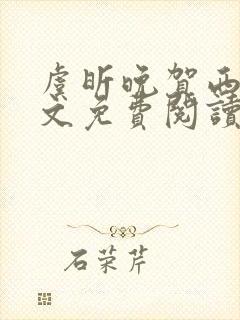 虞昕晚賀西
文免費閱讀
石荣芹